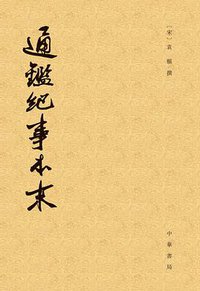 通鑑紀事本末
〔宋〕袁樞撰
中華書局